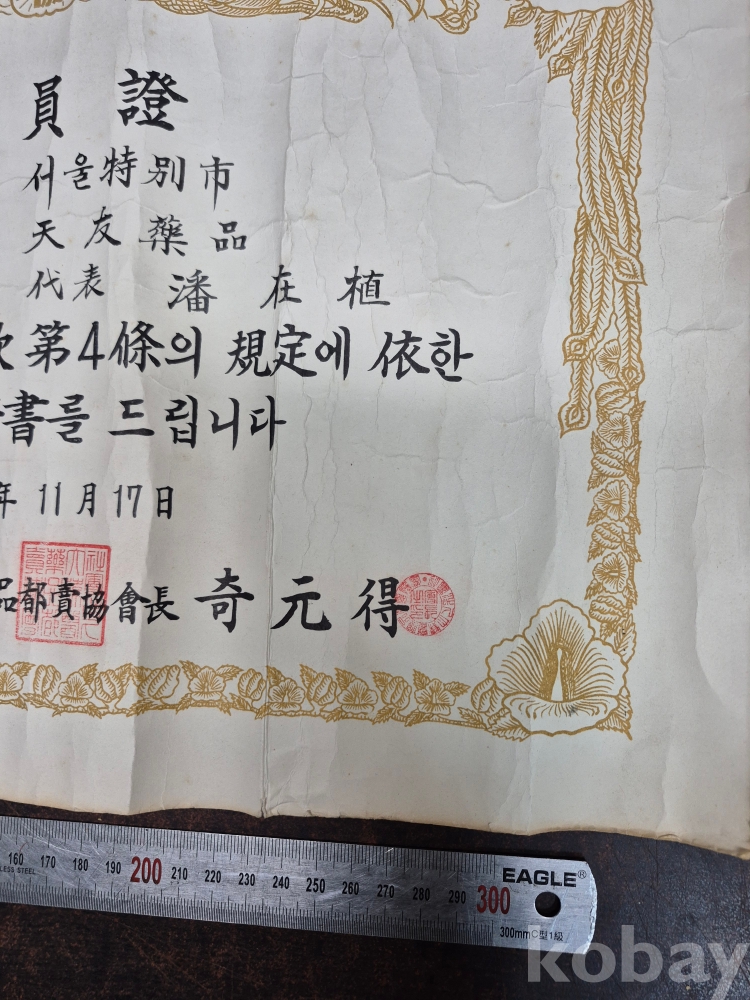 員證
서울特別市
天友藥品
代表 潘在植
第4條의 規定에 依한
書를 드립니다
年 11月 17日
品都賣協會長 奇元得
160 170 180 190 200 210 220 230 240 250 260 270 280 290 300
EAGLE®
300mm C型1級
kobay